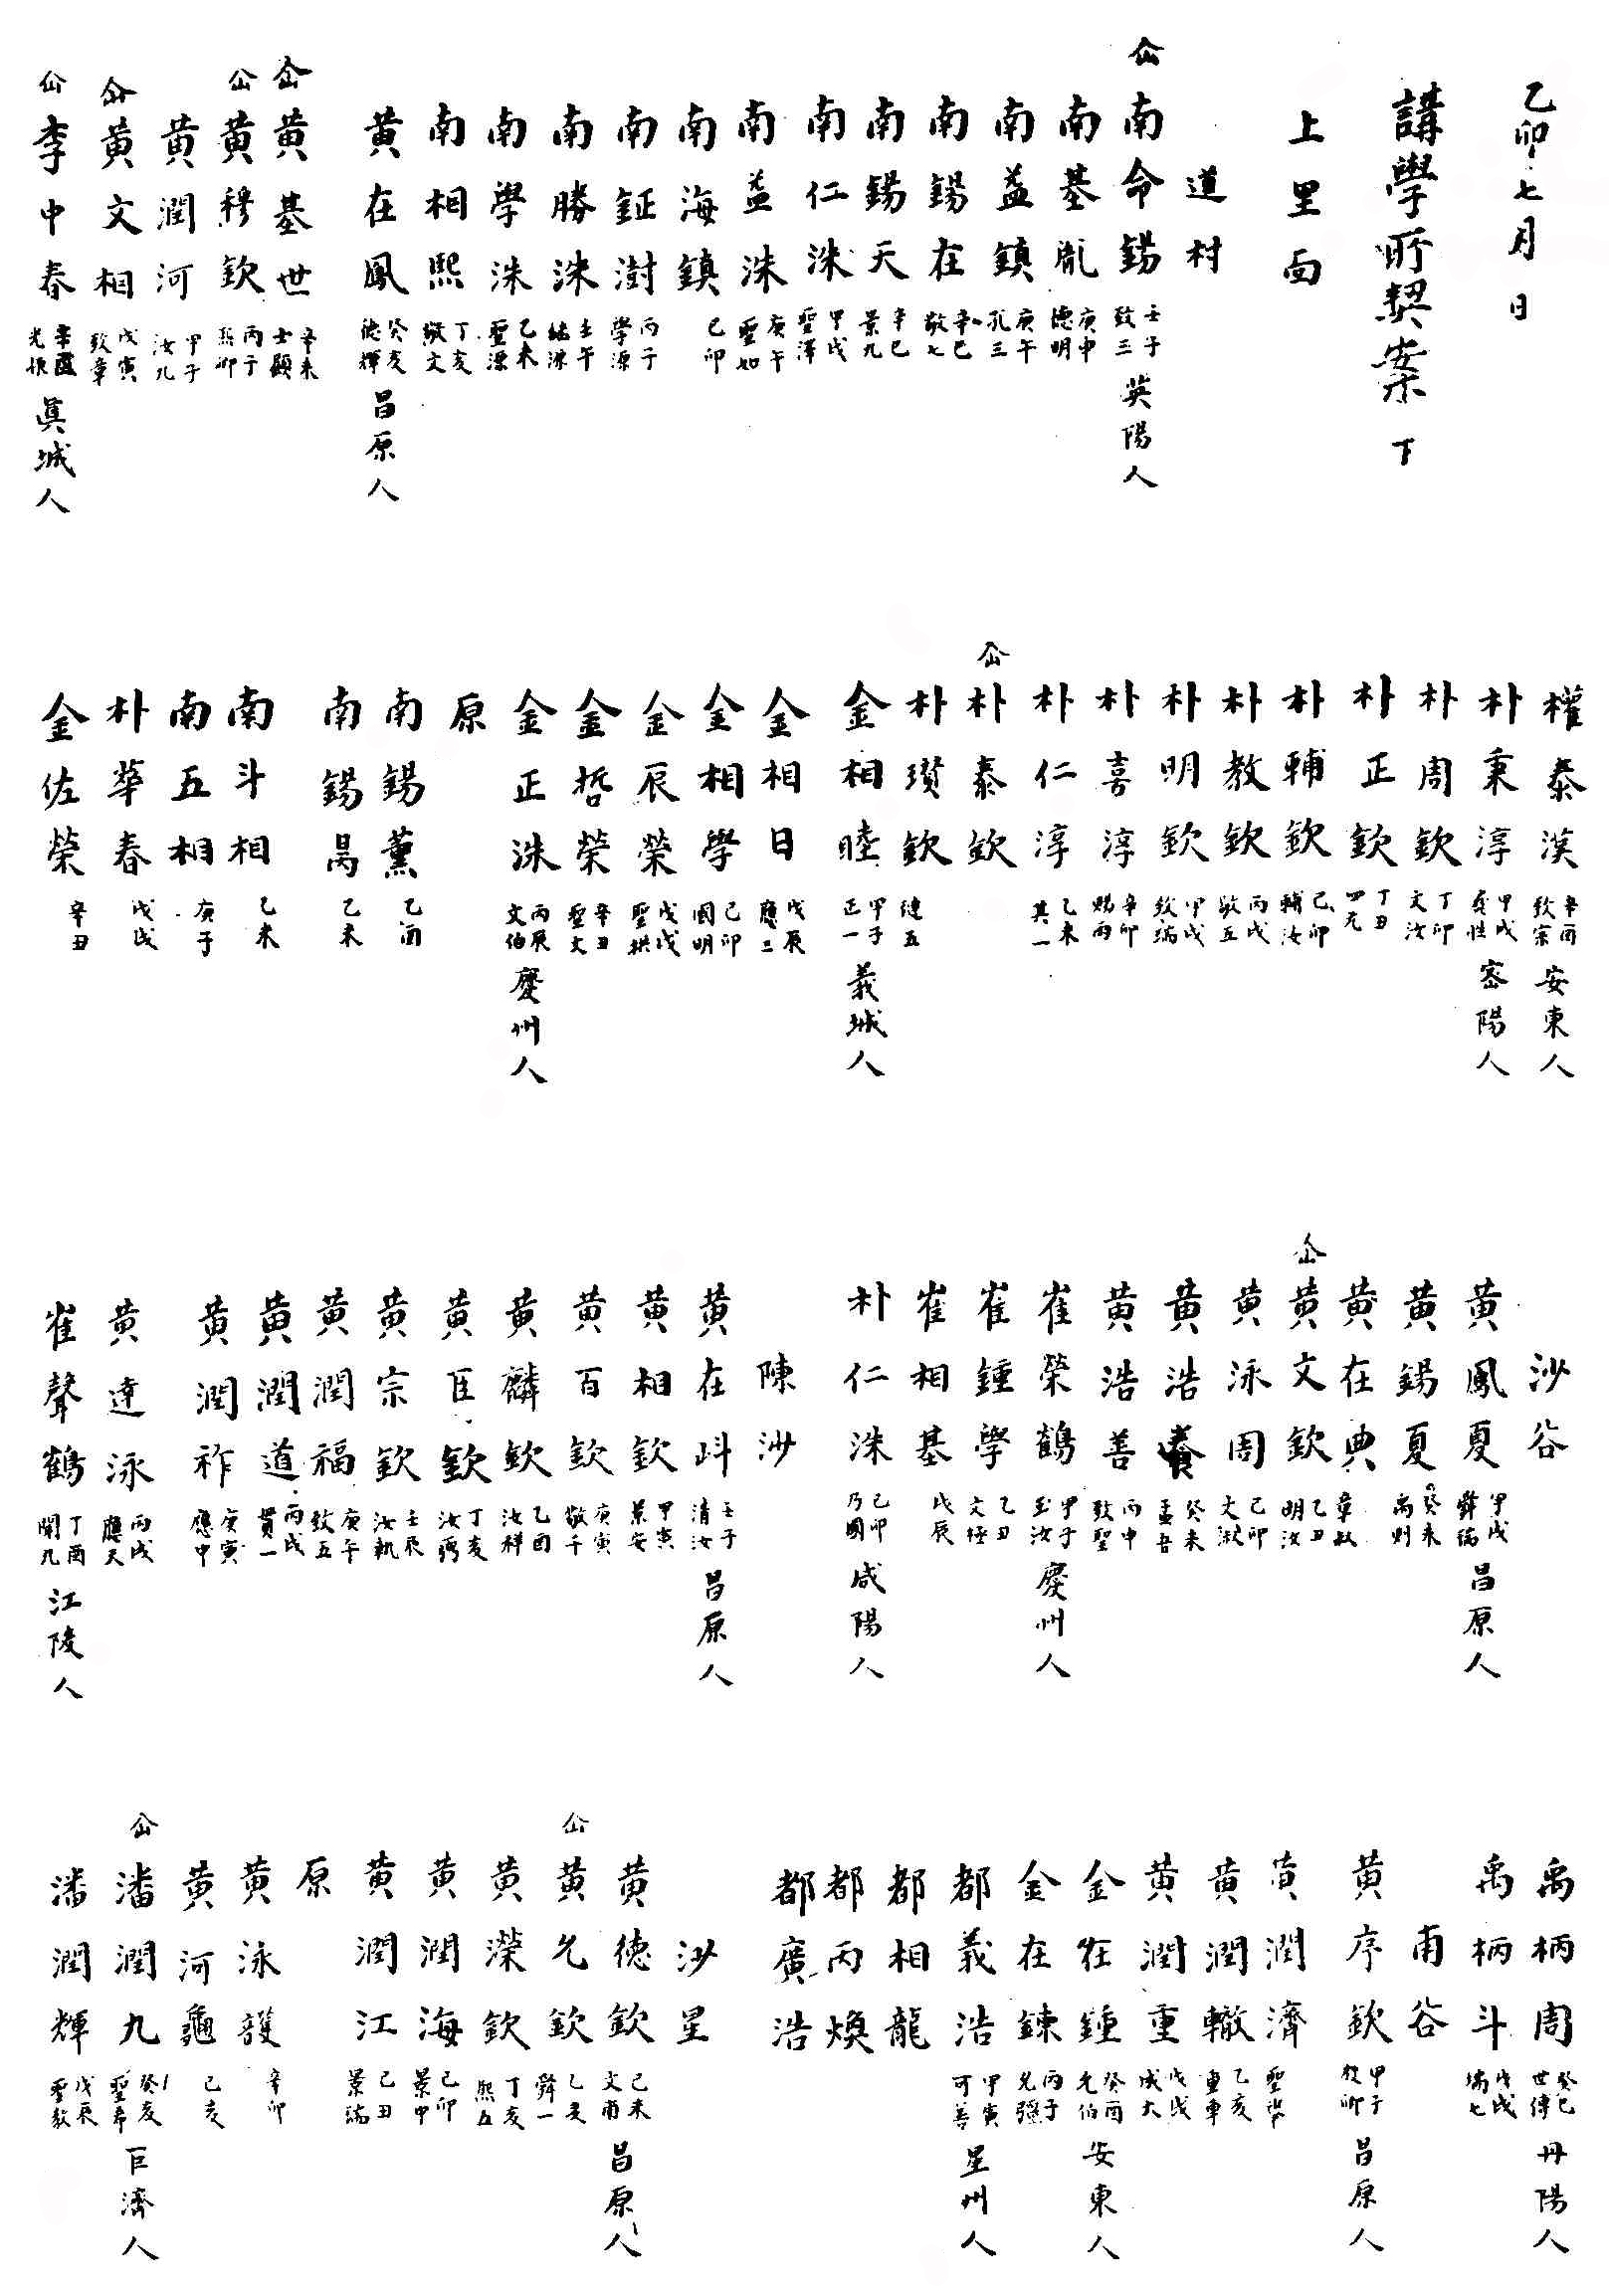 乙卯七月 日
講學所契案 下
上里面
道村
仚 南命錫 壬子 致三 英陽人
南基胤 庚申 德明
南益鎮 庚午 孔三
南錫在 辛巳 敬七
南錫天 辛巳 景九
南仁洙 甲戌 聖澤
南益洙 庚午 聖如
南海鎮 己卯
南鉦澍 丙子 學源
南勝洙 壬午
南學洙 乙未 聖源
南相熙 丁亥 敬文
黃在鳳 癸亥 德輝 昌原人
仚 黃基世 辛未 士顯
仚 黃穆欽 丙子 熙卿
黃潤河 甲子 汝九
仚 黃文相 戊寅 致章
仚 李中春 光振 眞城人
權泰漢 辛酉 致宗 安東人
朴秉淳 甲戌 密陽人
朴周欽 丁卯 文汝
朴正欽 丁丑 四元
朴輔欽 己卯 輔汝
朴教欽 丙戌 敬五
朴明欽 甲戌 致瑞
朴喜淳 辛卯 賜丙
朴仁淳 乙未 其一
仚 朴泰欽
朴瓚欽 建五
金相睦 甲子 正一 義城人
金相日 戊辰 應三
金相學 己卯 國明
金辰榮 戊戌 聖拱
金哲榮 辛丑 聖文
金正洙 丙辰 文伯 慶州人
原
南錫薰 乙酉
南錫暠 乙未
南斗相 乙未
南五相 庚子
朴華春 戊戌
金佐榮 辛丑
沙谷
黃鳳夏 甲戌 舜瑞 昌原人
黃錫夏 癸未 禹則
黃在典 章叔
仚 黃文欽 乙丑 明汝
黃泳周 己卯 文淑
黃浩養 癸未 孟吾
黃浩善 丙申 致聖
崔榮鶴 甲子 玉汝 慶州人
崔鍾學 乙丑 文極
崔相基 戊辰
朴仁洙 己卯 乃國 咸陽人
陳沙
黃在㪷 壬子 清汝 昌原人
黃相欽 甲寅 景安
黃百欽 庚寅 敬千
黃麟欽 乙酉 汝祥
黃臣欽 丁亥 汝弼
黃宗欽 壬辰 汝執
黃潤福 庚午 致五
黃潤道 丙戌 貫一
黃潤祚 庚寅 應中
黃達泳 丙戌 應天
崔聲鶴 丁酉 聞九 江陵人
禹柄周 癸巳 世傳 丹陽人
禹柄斗 戊戌 瑞七
甫谷
黃序欽 甲子 敍卿 昌原人
黃潤濟 聖楫
黃潤轍 乙亥 重車
黃潤重 戊戌 成大
金在鍾 癸酉 允伯 安東人
金在鍊 丙子 允強
都義浩 甲寅 可善 星州人
都相龍
都丙煥
都廣浩
沙星
黃德欽 己未 文甫 昌原人
仚 黃允欽 乙亥 舜一
黃濚欽 丁亥 熙五
黃潤海 己卯 景中
黃潤江 己丑 景瑞
原
黃泳護 辛卯
黃河龜 己亥
仚 潘潤九 癸亥 聖希 巨濟人
潘潤輝 戊辰 聖敎